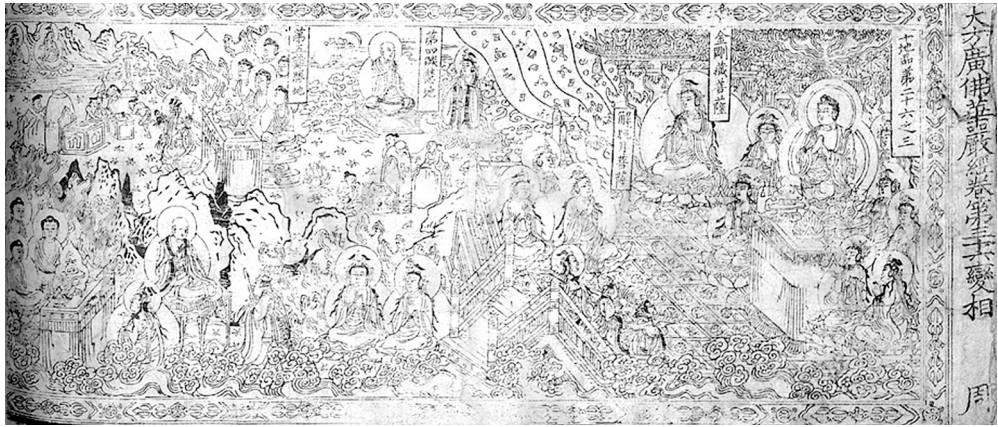 大方廣佛華嚴經卷第三十六變相
周
十地品第二十六之三
金剛藏菩薩
解脫月菩薩
第四燄慧地
第五難勝地